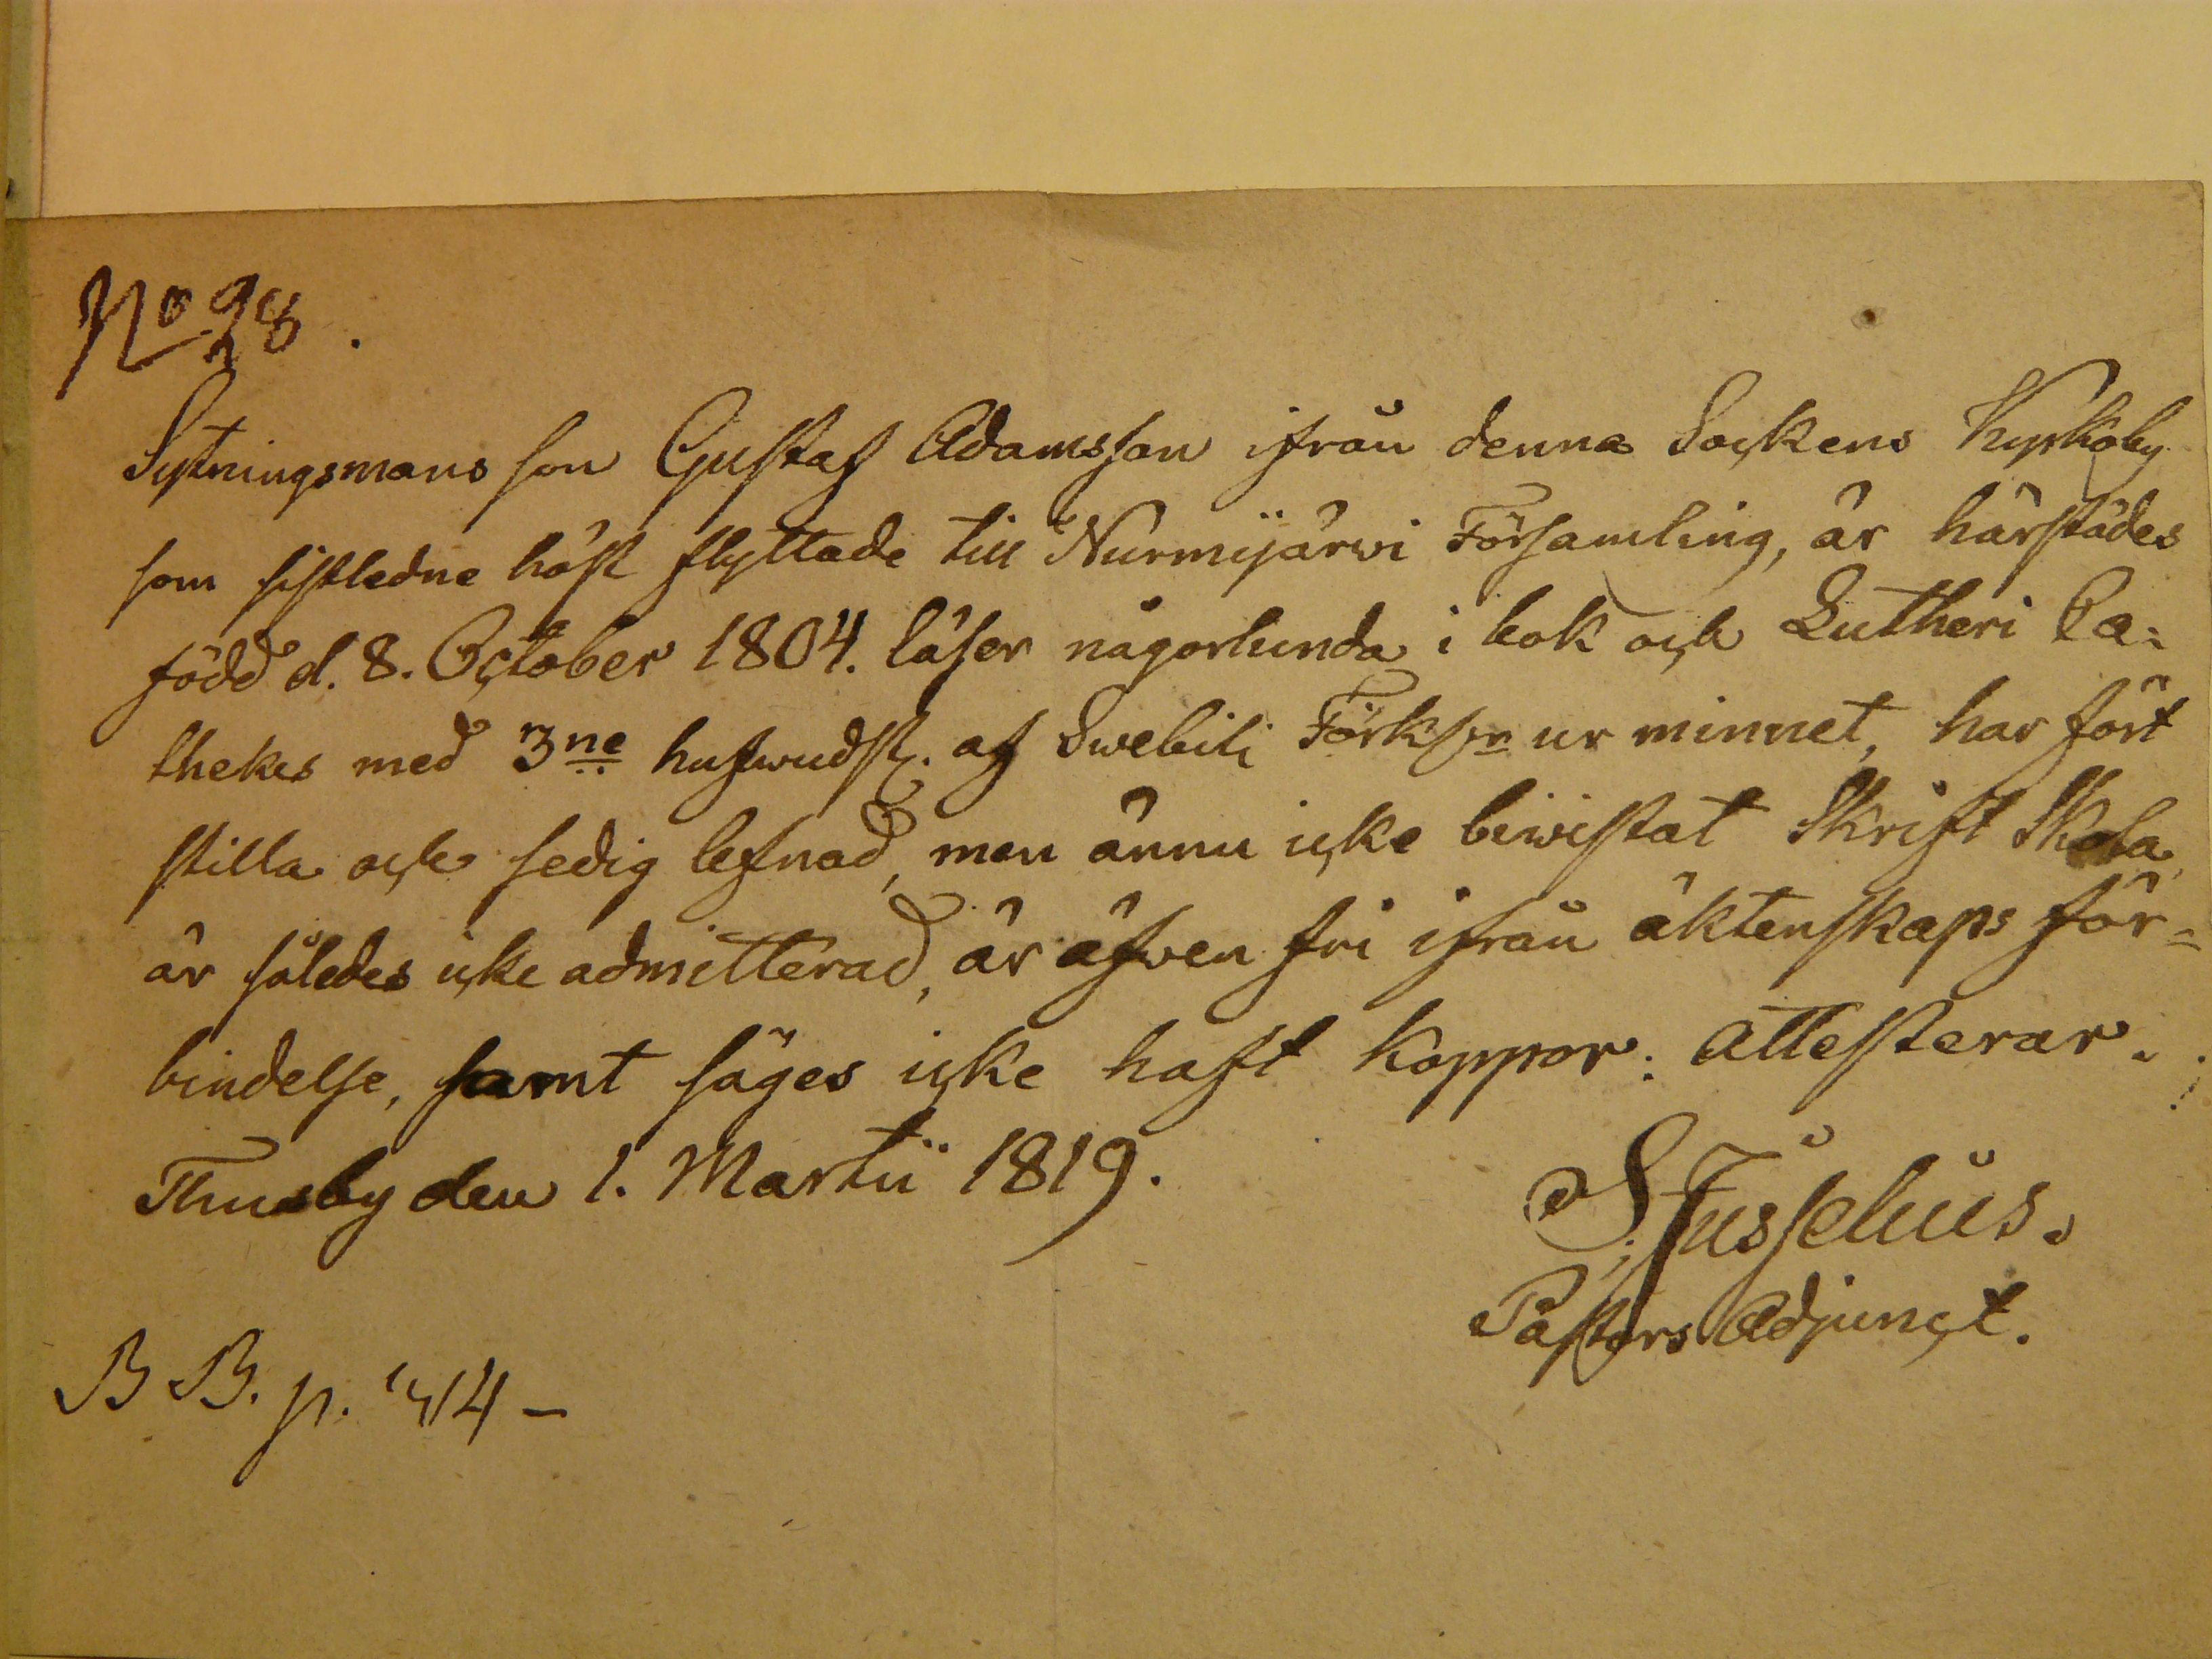 No 28.
Sytningsmans son Gustaf Adamsson ifrån denna Sockens Kyrkoby
som sistledne höst flyttade till Nurmijärwi Församling, är härstädes
född d. 8. October 1804. läser någorlunda i bok och Lutheri Ca-
thekes med 3ne hufwudst. af Swebili Förkl:r ur minnet, har fört
stilla och sedig lefnad, men ännu icke biwistat Skrift Skola,
är således icke admitterad, är äfwen fri ifrån äktenskaps för-
bindelse, samt säges icke haft koppor: Attesterar.
Thusby den 1. Martii 1819.
Pastors Adjunct.
B B. p. 414 -